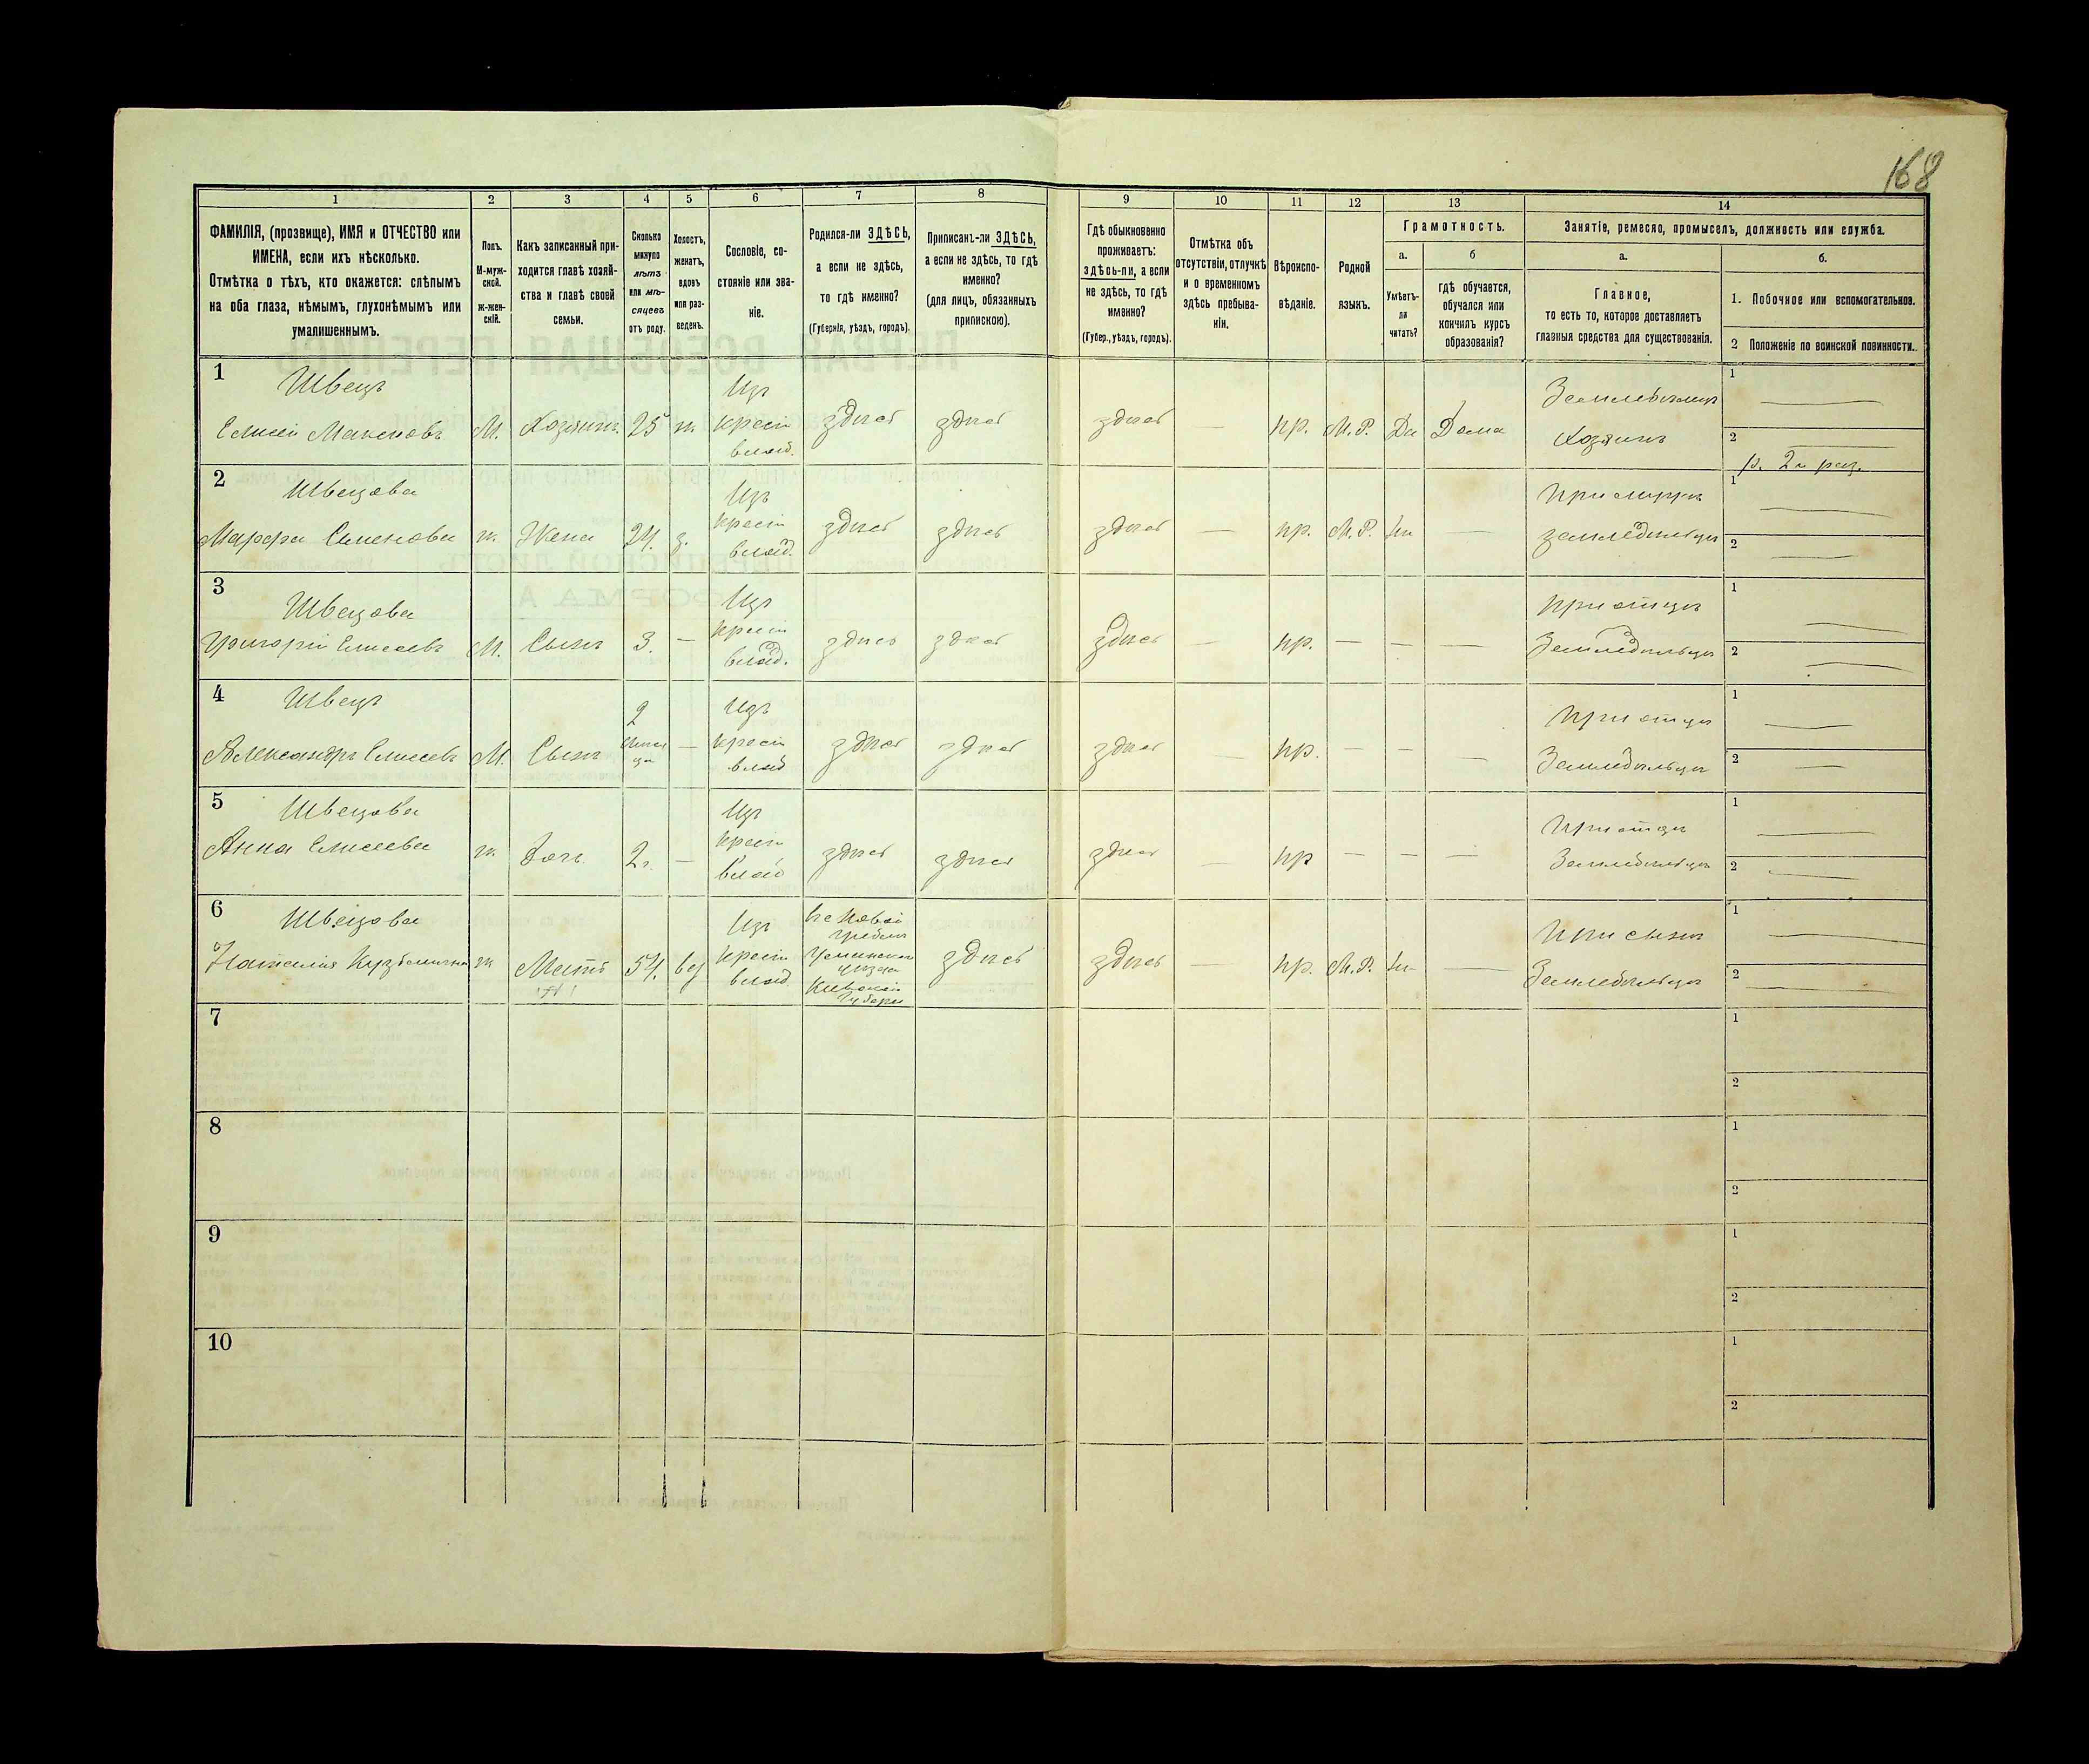 168
1
2
3
4
5
6
7
8
9
10
11
12
13
14
ФАМИЛІЯ, (прозвище), ИМЯ и ОТЧЕСТВО или
ИМЕНА, если ихъ нѣсколько.
Отмѣтка о тѣхъ, кто окажется: слѣпымъ
на оба глаза, нѣмымъ, глухонѣмымъ или
умалишеннымъ.
Полъ.
М-муж-
ской.
ж-жен-
скій.
Какъ записанный при-
ходится главѣ хозяй-
ства и главѣ своей
семьи.
Сколько
минуло
лѣтъ
или мѣ-
сяцевъ
отъ роду.
Холостъ,
женатъ,
вдовъ
или раз-
веденъ.
Сословіе, со-
стояніе или зва-
ніе.
Родился-ли ЗДѢСЬ,
а если не здѣсь,
то гдѣ именно?
(Губернія, уѣздъ, городъ).
Приписанъ-ли ЗДѢСЬ,
а если не здѣсь, то гдѣ
именно?
(для лицъ, обязанныхъ
припискою).
Гдѣ обыкновенно
проживаетъ:
здѣсь-ли, а если
не здѣсь, то гдѣ
именно?
(Губер., уѣздъ, городъ).
Отмѣтка объ
отсутствіи, отлучкѣ
и о временномъ
здѣсь пребыва-
ніи.
Вѣроиспо-
вѣданіе.
Родной
языкъ.
Грамотность.
а.
Умѣетъ-
ли
читать?
б
гдѣ обучается,
обучался или
кончилъ курсъ
образованія?
Занятіе, ремесло, промыселъ, должность или служба.
а.
Главное,
то есть то, которое доставляетъ
главныя средства для существованія.
б.
1. Побочное или вспомогательное.
2 Положеніе по воинской повинности.
1
Швецъ
Елисей Максимовъ
М.
Хозяинъ
25
ж.
Изъ
крест
влад.
здѣсь
здѣсь
здѣсь
—
пр.
М.Р.
Да
Дома
Земледѣлецъ
Хозяинъ
1
—
2
—
2
Швецова
Марфа Семенова
ж.
Жена
24.
з.
Изъ
крест
влад.
здѣсь
здѣсь
здѣсь
—
пр.
М.Р.
—
При мужѣ
земледѣльцѣ
1
—
2
—
3
Швецова
Григорій Елисеевъ
М.
Сынъ
3.
—
Изъ
крест
влад.
здѣсь
здѣсь
здѣсь
—
пр.
—
—
—
При отцѣ
Земледѣльцѣ
1
—
2
—
4
Швецъ
Александръ Елисеевъ
М.
Сынъ
2
мѣся
ца
—
Изъ
крест
влад
здѣсь
здѣсь
здѣсь
—
пр.
—
—
—
При отцѣ
Земледѣльцѣ
1
—
2
—
5
Швецова
Анна Елисеева
ж.
Дочь
2г.
—
Изъ
крест
влад
здѣсь
здѣсь
здѣсь
—
пр
—
—
—
При отцѣ
Земледѣльцѣ
1
—
2
—
6
Швецова
Наталія Кузьминична
ж
Мать
54.
вд
Изъ
крест
влад.
Уманскаго
уѣзда
Кіевской
губерн
здѣсь
здѣсь
—
пр.
М.Р.
—
При сынѣ
Земледѣльцѣ
1
—
2
—
7
1
2
8
1
2
9
1
2
10
1
2